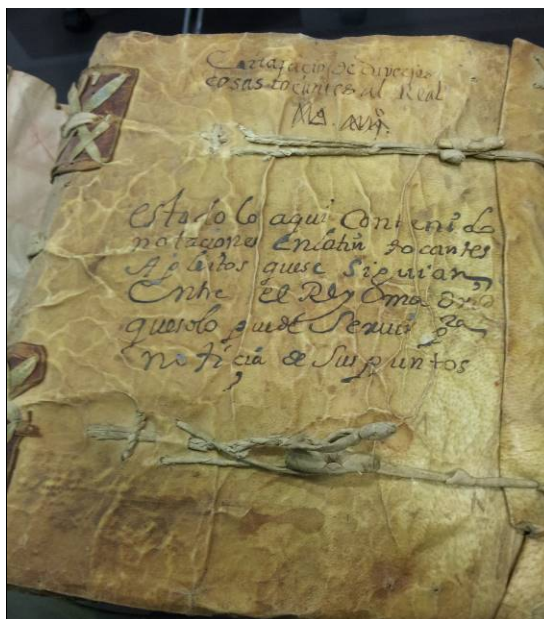 Cartapacio de diversas
cosas tocantes al Real
es todo lo aqui Contenido
notaciones En latin tocantes
A pleitos quese Siguian
Entre el Rey
quesolo puede Servir pa
noticia de Sus puntos